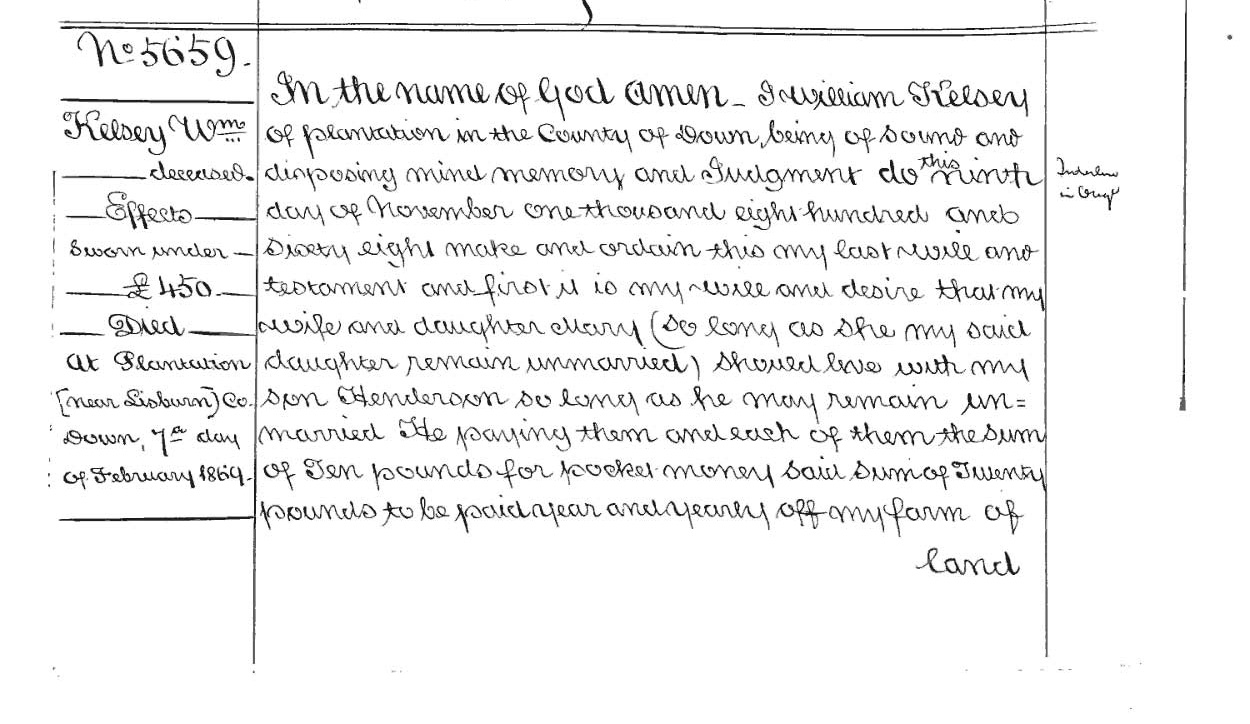 No 5659.
Kelsey Wm
deceased.
Effects
Sworn under
£450
Died
At Plantation
[near Lisburn] Co.
Down, 7th day
of February 1869.
In the name of God Amen - I William Kelsey
of plantation in the County of Down, being of sound and
disposing mind memory and Judgment do this ninth
day of November one thousand eight hundred and
Sixty eight make and ordain this my last will and
testament and first it is my will and desire that my
wife and daughter Mary (so long as she my said
daughter remain unmarried) should live with my
son Henderson so long as he may remain un=
married He paying them and each of them the sum
of Ten pounds for pocket money said sum of Twenty
pounds to be paid year and yearly off my farm of
land
in